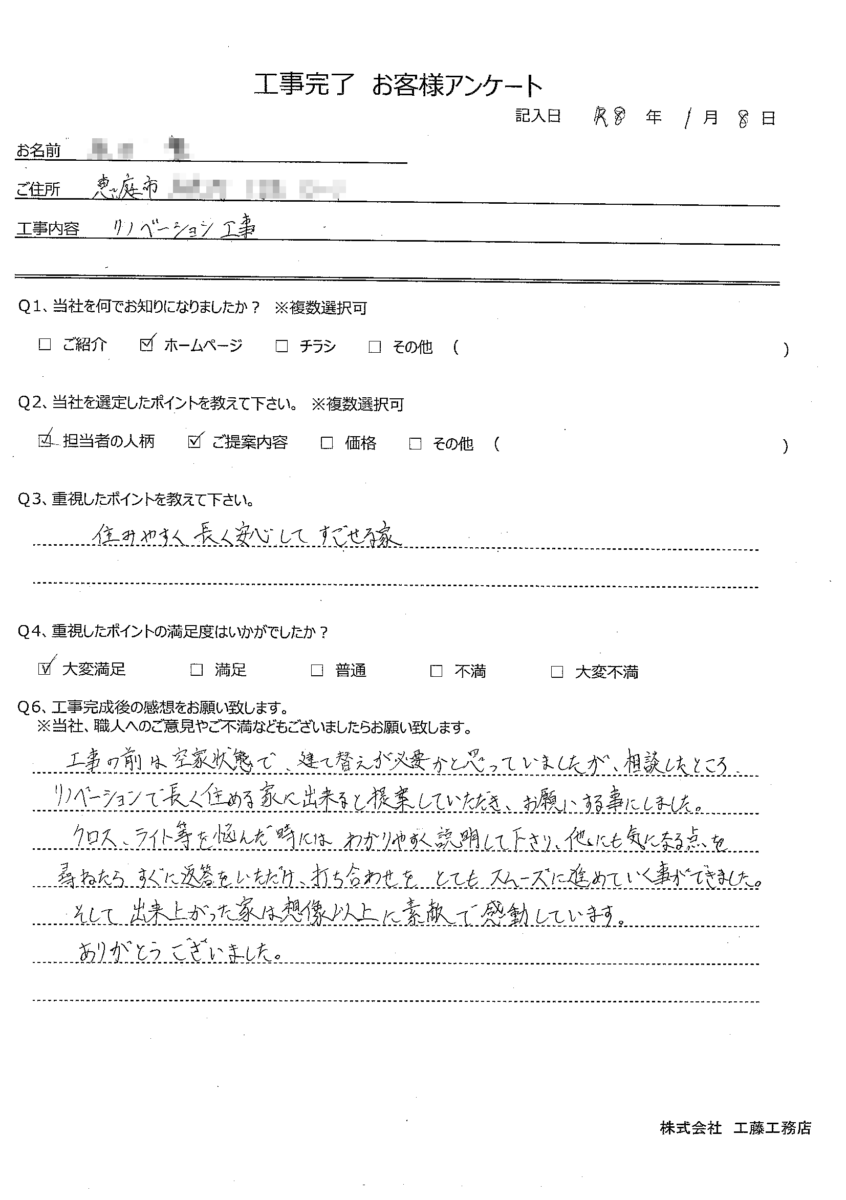 工事完了 お客様アンケート
記入日 R8 年 1月 8日
お名前
ご住所 恵庭市
工事内容 リノベーション工事
Q1、当社を何でお知りになりましたか? ※複数選択可
□ ご紹介 ☑ ホームページ □ チラシ □ その他 ( )
Q2、当社を選定したポイントを教えて下さい。 ※複数選択可
☑ 担当者の人柄 ☑ ご提案内容 □ 価格 □ その他 ( )
Q3、重視したポイントを教えて下さい。
住みやすく 長く安心して すごせる家
Q4、重視したポイントの満足度はいかがでしたか?
☑ 大変満足 □ 満足 □ 普通 □ 不満 □ 大変不満
Q6、工事完成後の感想をお願い致します。
※当社、職人へのご意見やご不満などもございましたらお願い致します。
工事の前は空家状態で、建て替えが必要かと思っていましたが、相談したところ
リノベーションで長く住める家に出来ると提案していただき、お願いする事にしました。
クロス、ライト等を悩んだ時には わかりやすく説明して下さり、他にも気になる点を
尋ねたら すぐに返答をいただけ、打ち合わせを とてもスムーズに進めていく事ができました。
そして 出来上がった家は想像以上に素敵で感動しています。
ありがとうございました。
株式会社 工藤工務店